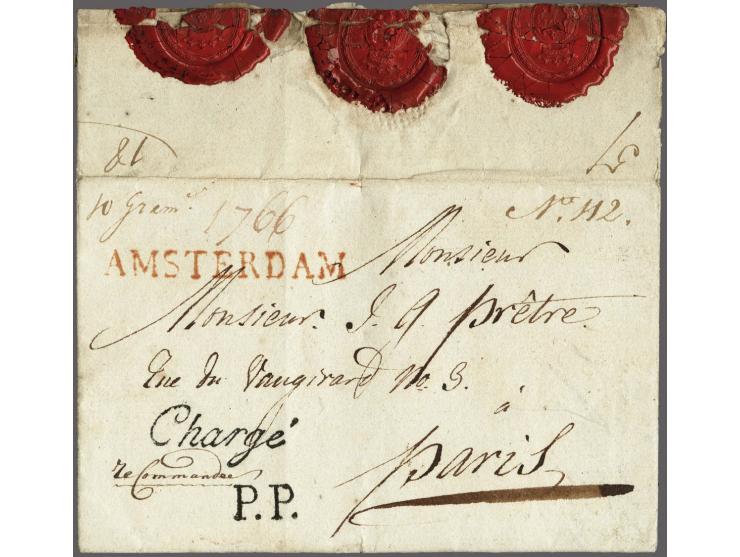 81
10 Gram.
1766
No. 112.
AMSTERDAM
Monsieur
Monsieur. J. G. Prêtre.
Rue du Vaugirard No. 3.
à
Chargé
Paris
reCommandee
P.P.